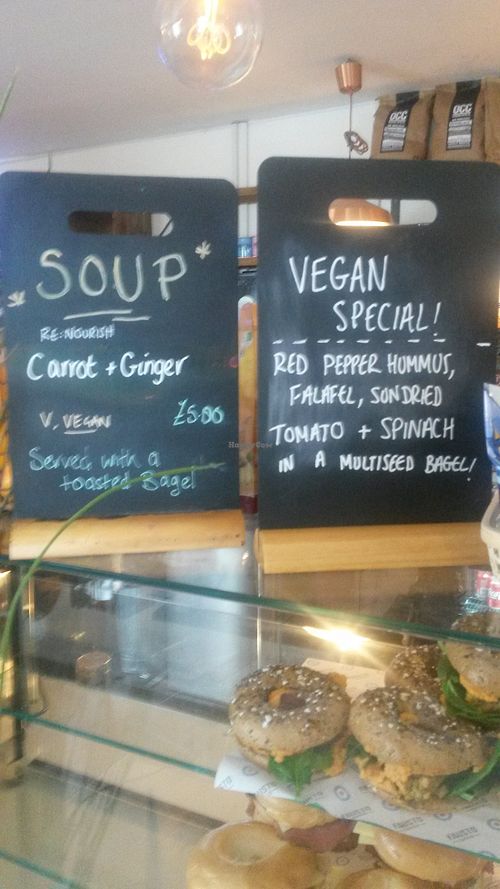 SOUP
RE:NOURISH
Carrot + Ginger
V, VEGAN £5.00
Served with a
toasted Bagel
VEGAN
SPECIAL!
RED PEPPER HUMMUS,
FALAFEL, SONDRIED
TOMATO + SPINACH
IN A MULTISEED BAGEL!
OCC
OCC
HappyCow
FAUSTO
FAUSTO